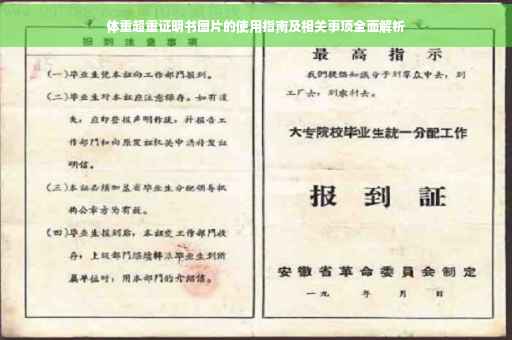 体重超重证明书图片的使用指南及相关事项全面解析
报到注意事项
(一)毕业生凭本证向工作部门报到。
(二)毕业生对本证应注意保存。如有遗
失,应即登报声明作废,并报告工
作部门和向原发证机关申请补发证
明信。
(三)本证必须加盖省毕业生分配领导机
构公章方为有效。
(四)毕业生报到后,本证交工作部门收
存;上级部门继续转派毕业生到所
属单位时,用本部门的介绍信。
最高指示
我们提倡知识分子到群众中去,到
工厂去,到农村去。
大专院校毕业生統一分配工作
报到証
安徽省革命委員会制定
一九 年 月 日